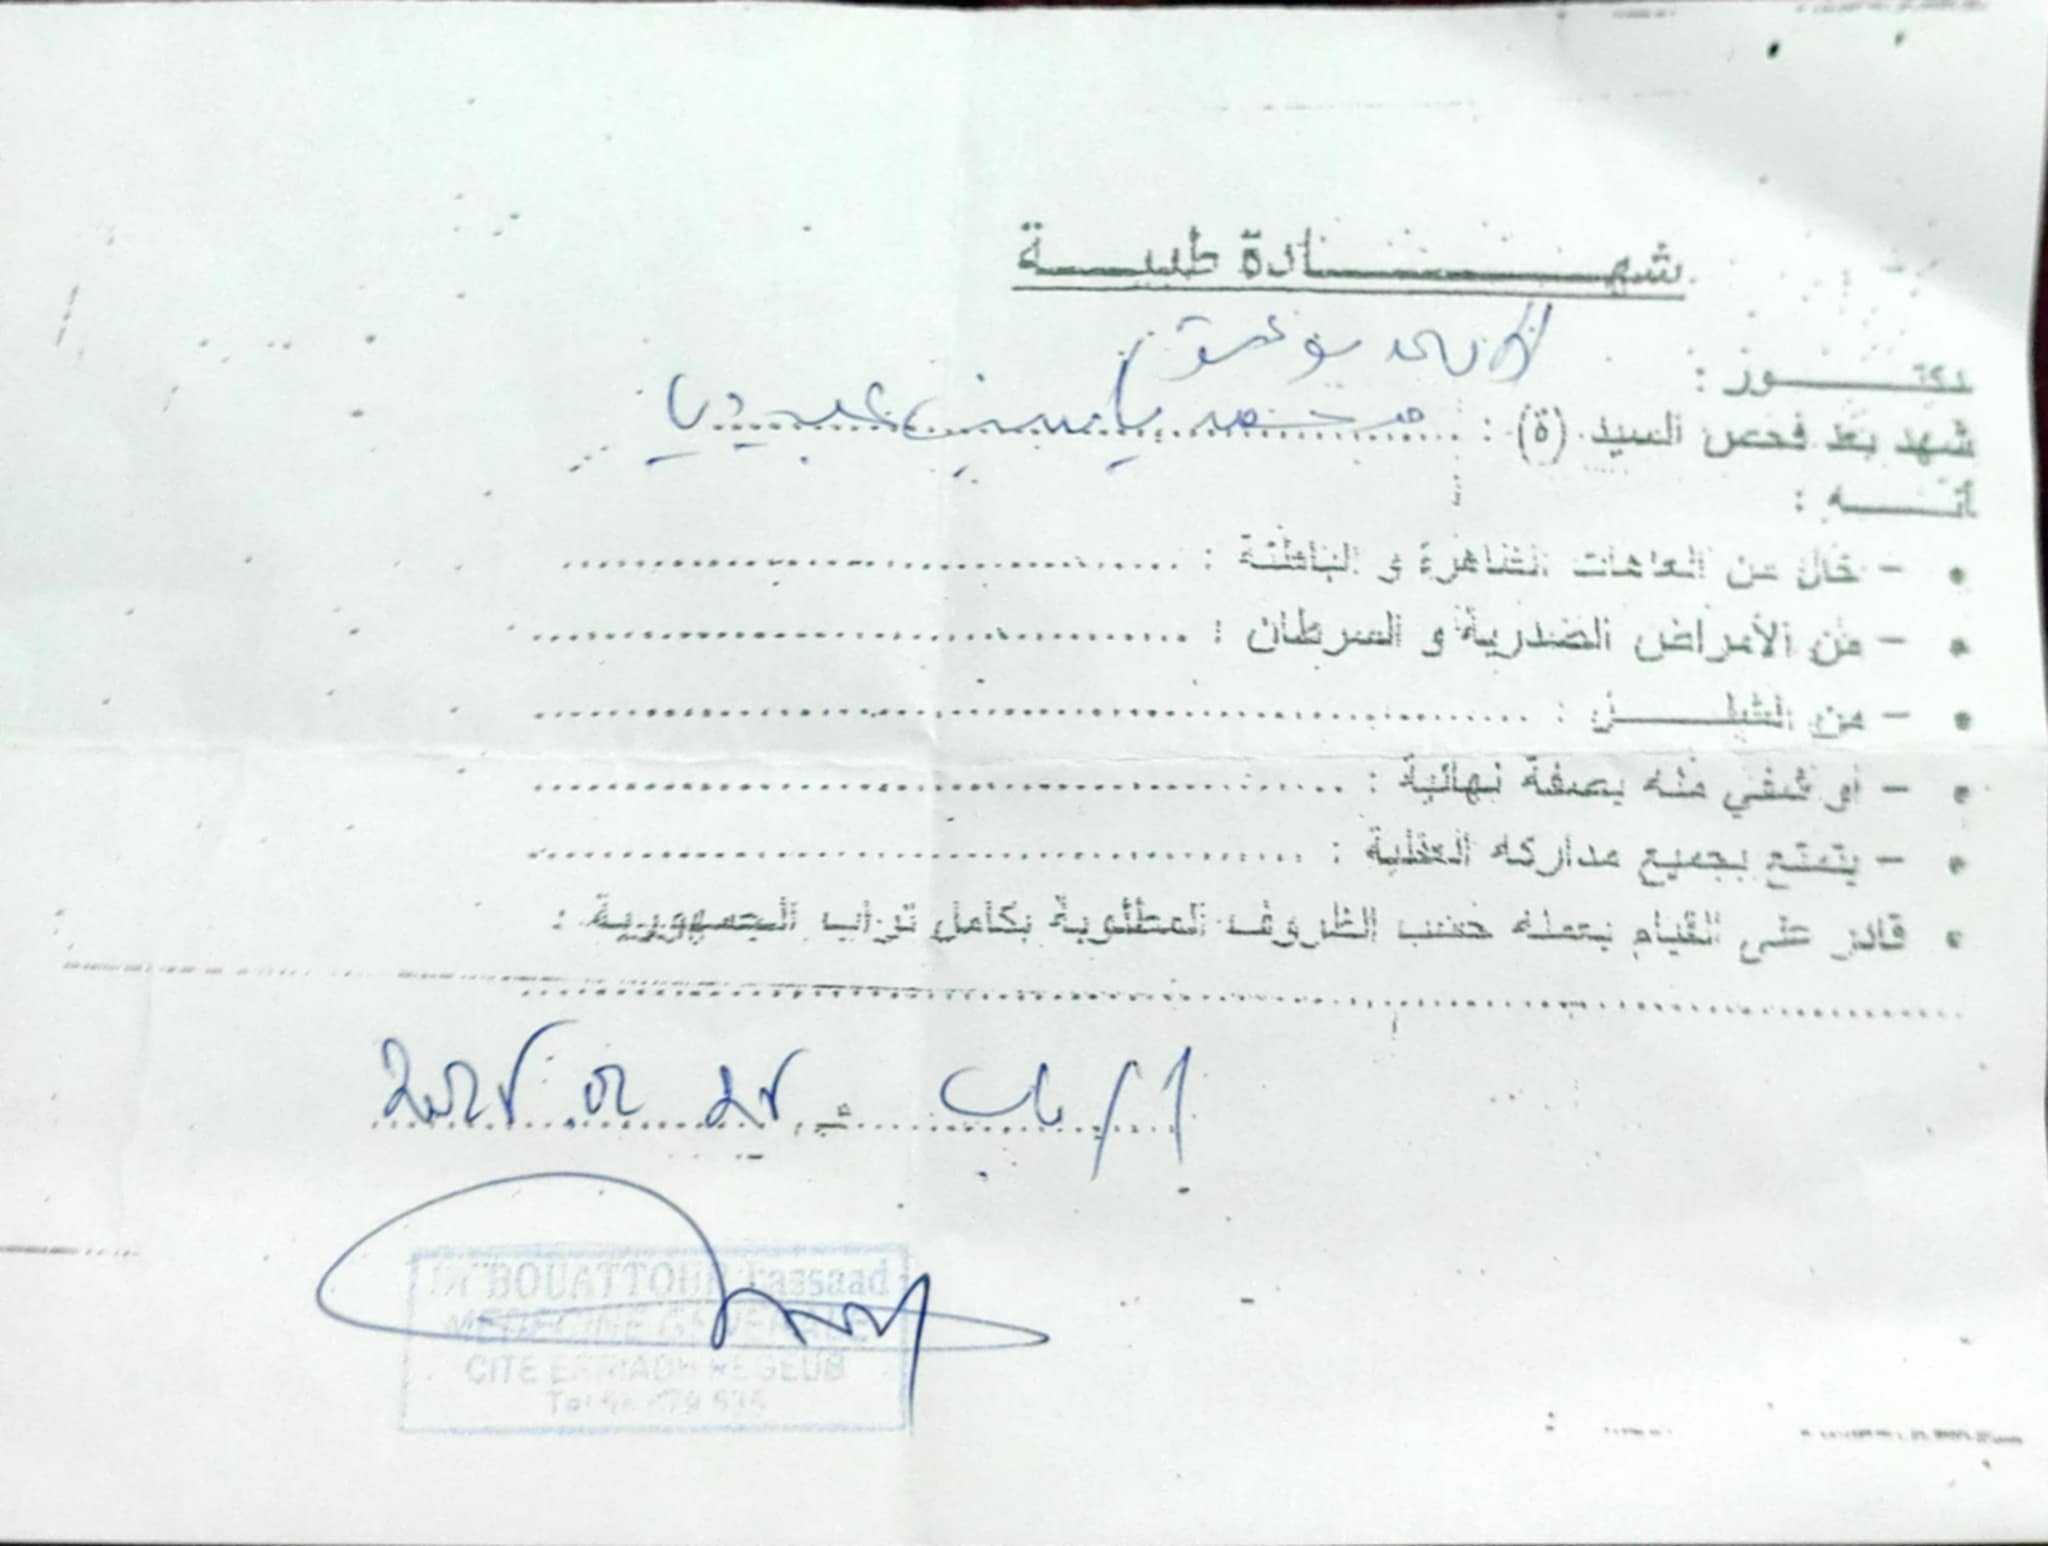 شهادة طبية
دكتور :
شهد بعد فحص السيد (ة) : محمد ياسين عبيدي
أنه :
• - خال من العاهات الظاهرة و الباطنة :
• - من الأمراض الصدرية و السرطان :
• - من الشلل :
• - أو شفي منه بصفة نهائية :
• - يتمتع بجميع مداركه العقلية :
• قادر على القيام بعمله حسب الظروف المطلوبة بكامل تراب الجمهورية :
Dr BOUATTOUR Lassaad
MEDECINE GENERALE
CITE ERRIADH REGEUB